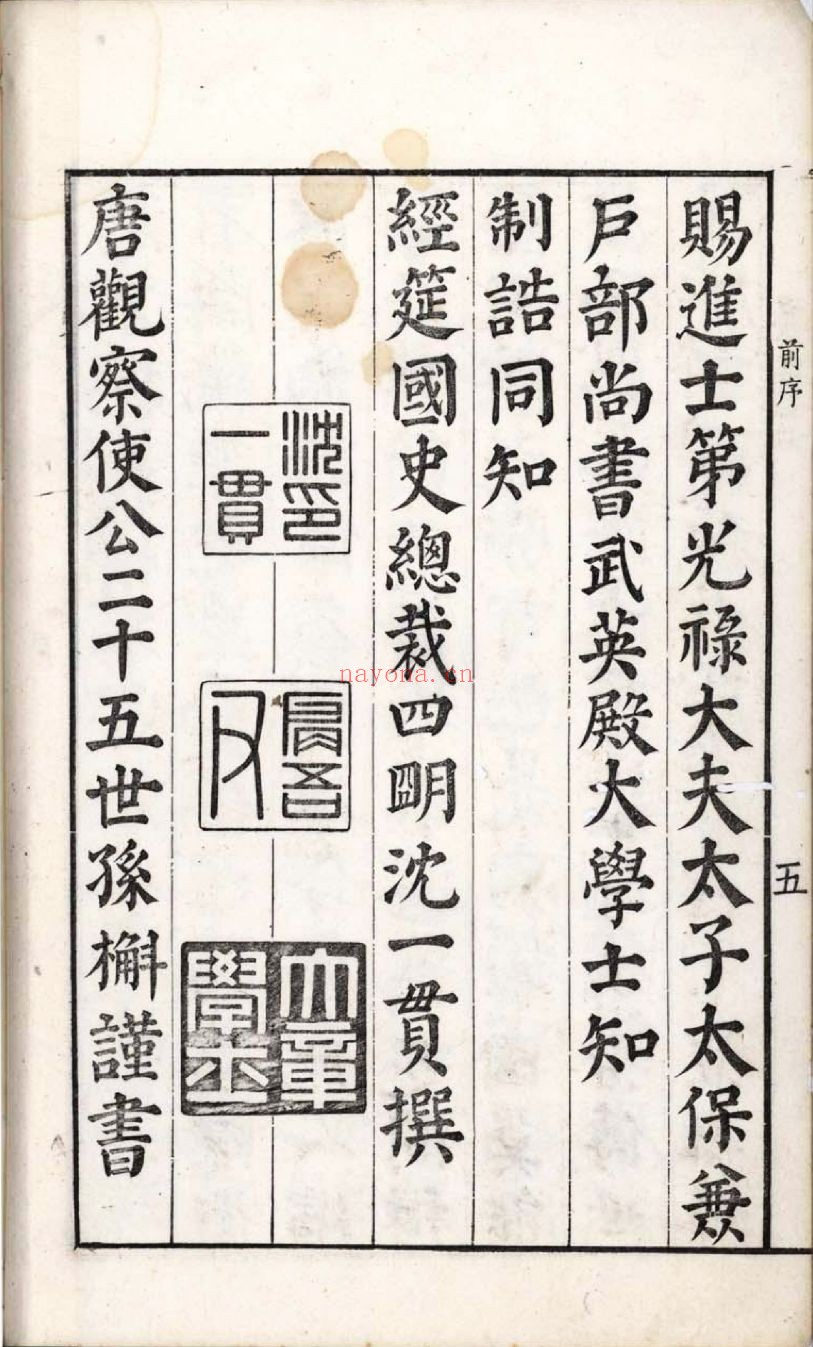 賜進士第光祿大夫太子太保兼
戶部尚書武英殿大學士知
制誥同知
經筵國史總裁四明沈一貫撰
沈印
一貫
大章
學士
唐觀察使公二十五世孫檞謹書
前序
五
nayona.cn